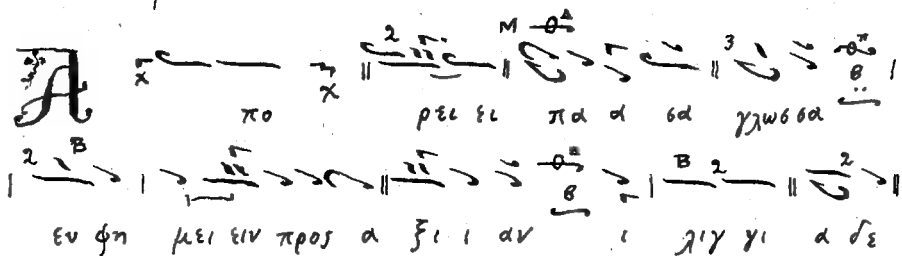 Α πο ρει ει πα α σα γλωσσα
ευ φη μει ειν προς α ξι ι αν ι λιγ γι α δε